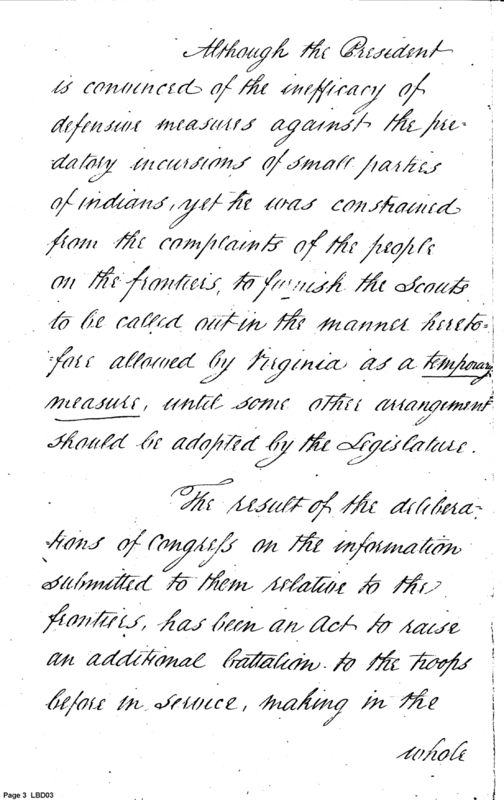 Although the President
is convinced of the inefficacy of
defensive measures against the pre-
datory incursions of small parties
of indians, yet he was constrained
from the complaints of the people
on the frontiers, to furnish the Scouts
to be called out in the manner hereto-
=fore allowed by Virginia as a temporary
measure, until some other arrangement
should be adopted by the Legislature.
The result of the delibera-
tions of Congress on the information
submitted to them relative to the
frontiers, has been an Act to raise
an additional battalion to the troops
before in service, making in the
whole
Page 3 LBD03